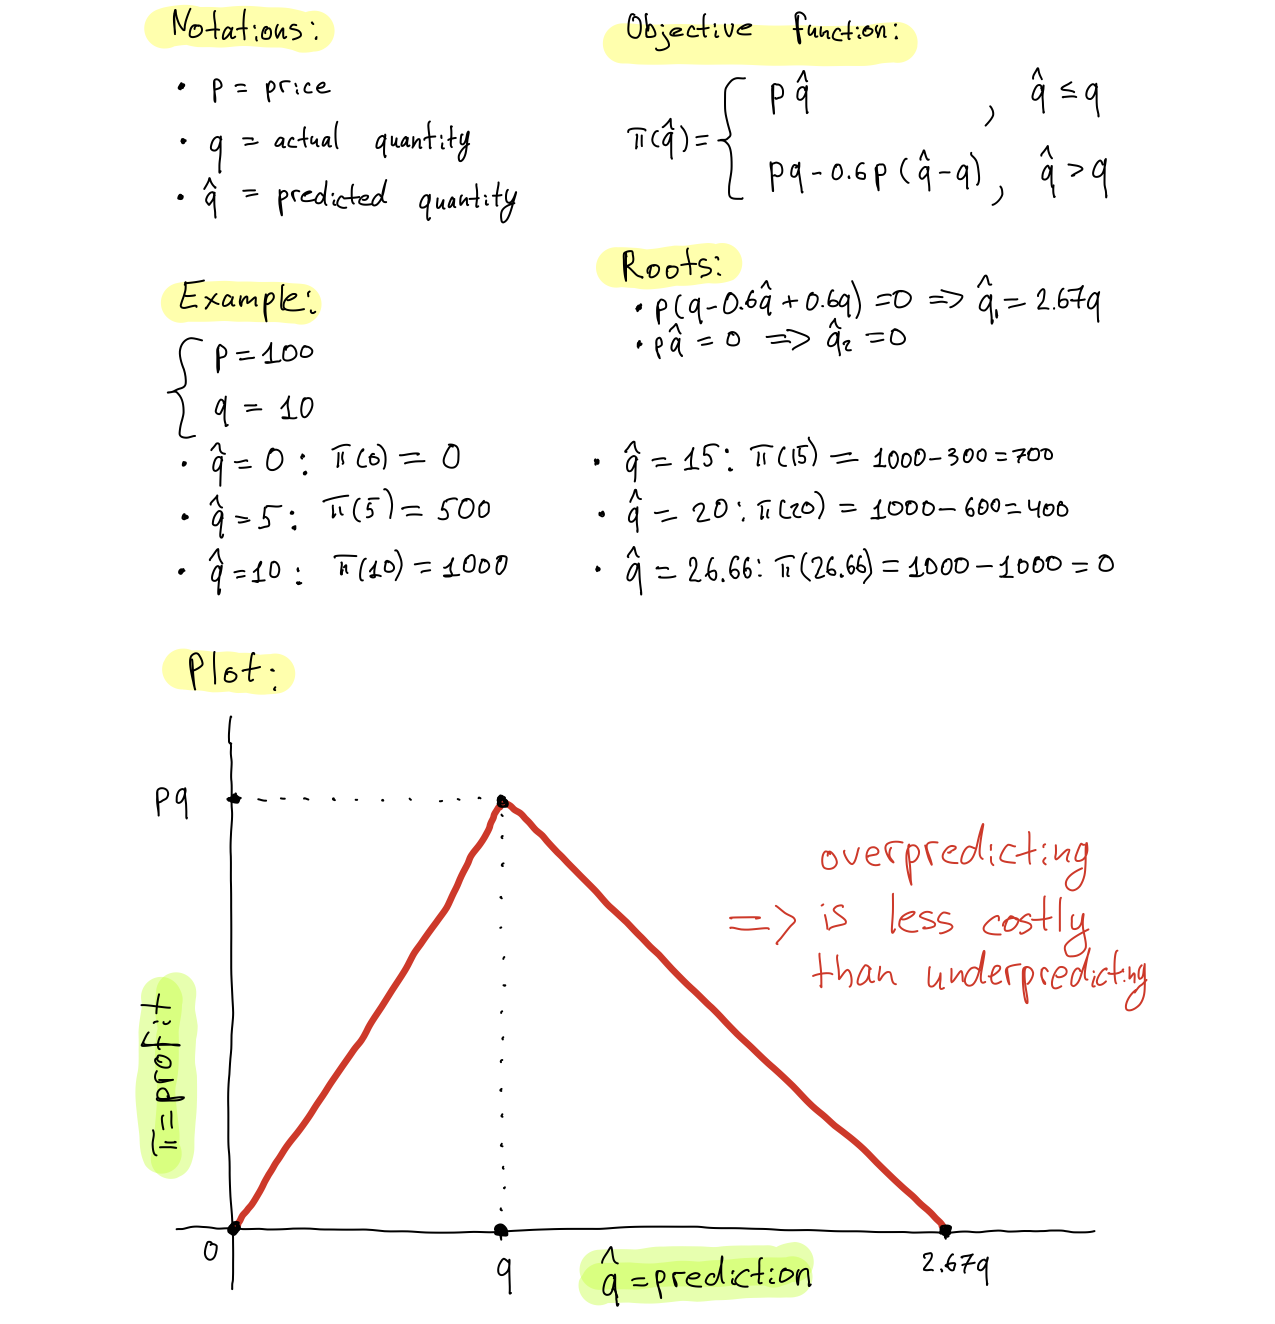 Notations:
• p = price
• q = actual quantity
• q̂ = predicted quantity
Objective function:
π(q̂) = { p q̂ , q̂ ≤ q
pq - 0.6p (q̂ - q) , q̂ > q
Roots:
• p(q - 0.6q̂ + 0.6q) = 0 => q̂₁ = 2.67q
• pq̂ = 0 => q̂₂ = 0
Example:
{ p = 100
q = 10
• q̂ = 0 : π(0) = 0
• q̂ = 5 : π(5) = 500
• q̂ = 10 : π(10) = 1000
• q̂ = 15 : π(15) = 1000 - 300 = 700
• q̂ = 20 : π(20) = 1000 - 600 = 400
• q̂ = 26.66 : π(26.66) = 1000 - 1000 = 0
Plot:
pq
overpredicting
=> is less costly
than underpredicting
π = profit
0
q
q̂ = prediction
2.67q